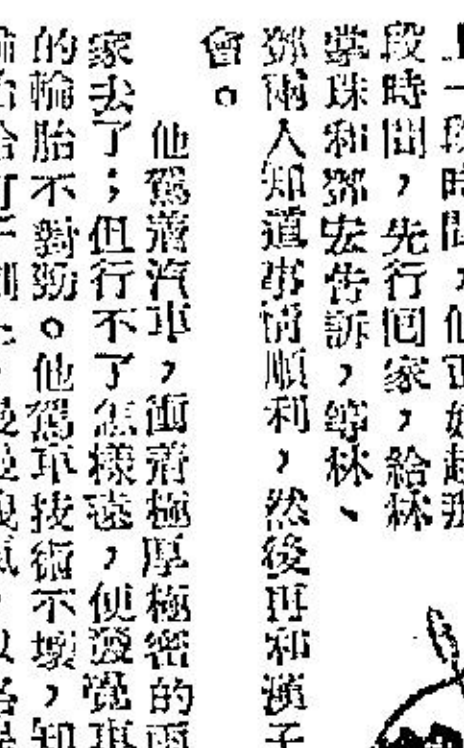 上一段時間，他正好趁那
段時間，先行回家，給林
掌珠和鄧宏告訴，綽林、
鄧兩人知道事情順利，然後再和演子
會。
他駕着汽車，衝着極厚極密的雨
家去了；但行不了怎樣遠，便發覺車
的輪胎不對勁。他駕車技術不壞，知